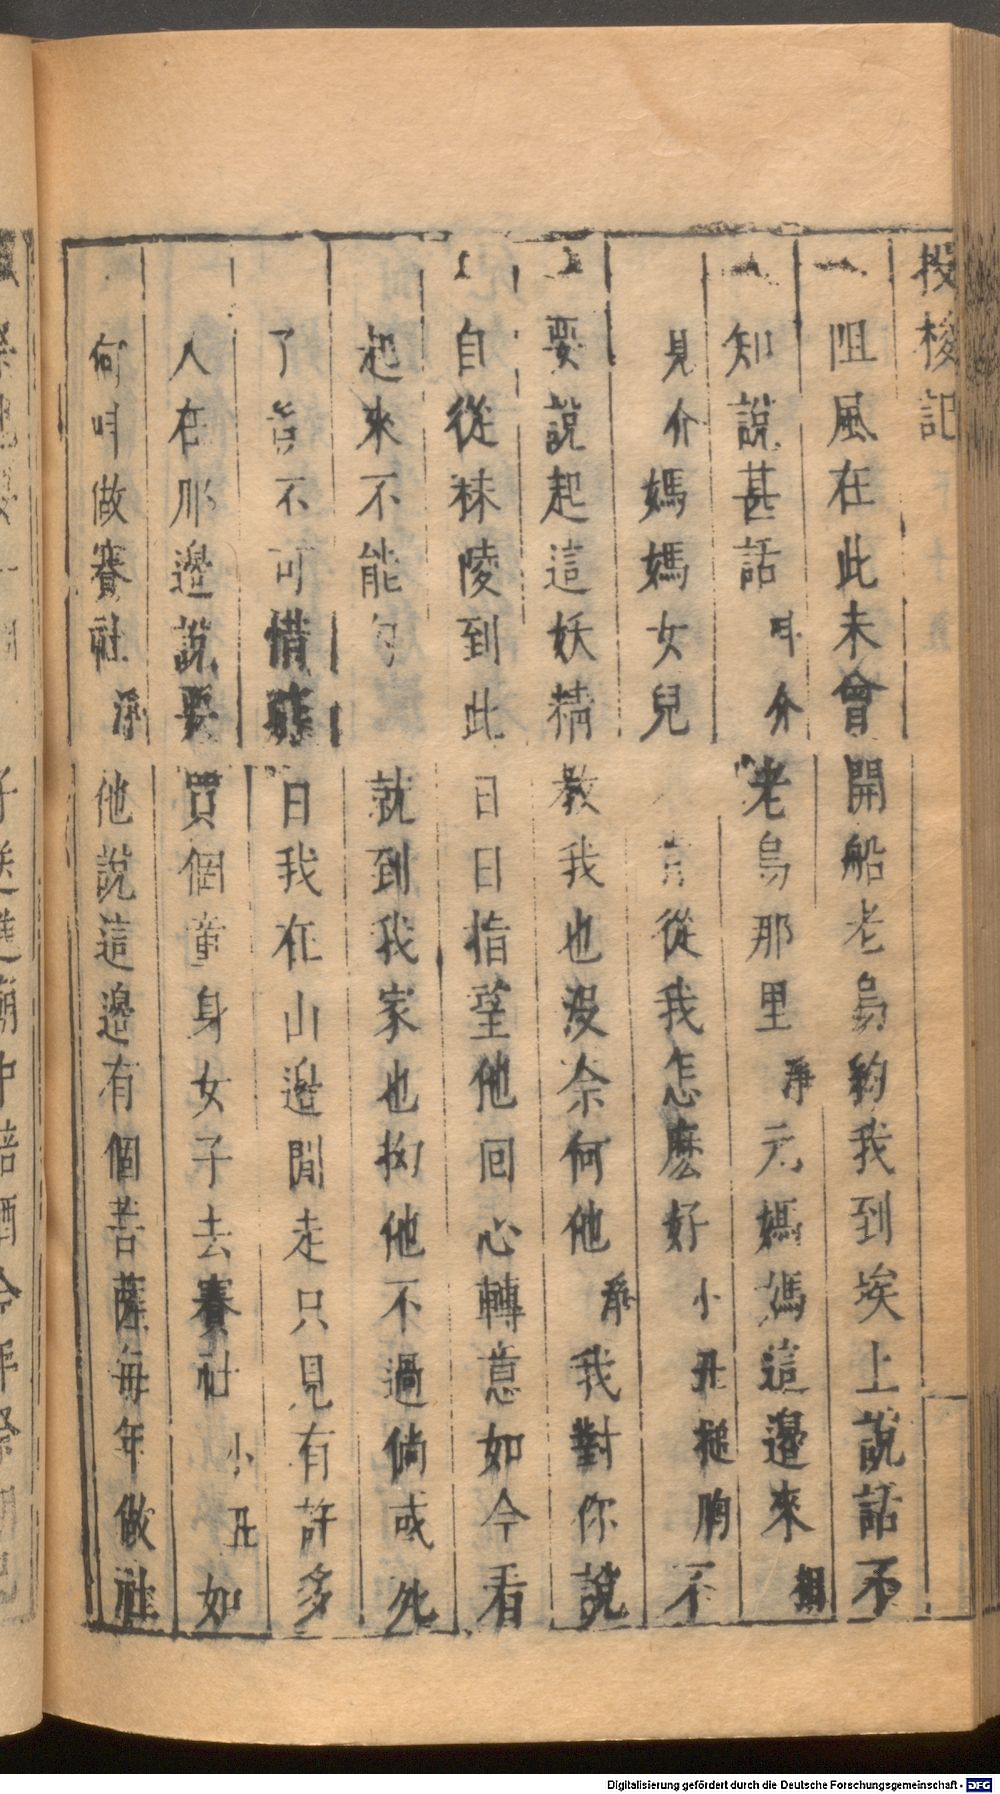 投梭記
阻風在此未曾開船老烏約我到埃上說話不
知說甚話叫介老烏那里淨元媽媽這邊來相
見介媽媽女兒肯從我怎麼好小丑搥胸不
要說起這妖精教我也沒奈何他淨我對你說
自從秣陵到此日日指望他回心轉意如今看
起來不能勾就到我家也拗他不過倘或死
了豈不可惜昨日我在山邊閒走只見有許多
人在那邊說要買個童身女子去賽社小丑如
何叫做賽社淨他說這邊有個菩薩每年做社
Digitalisierung gefördert durch die Deutsche Forschungsgemeinschaft - DFG